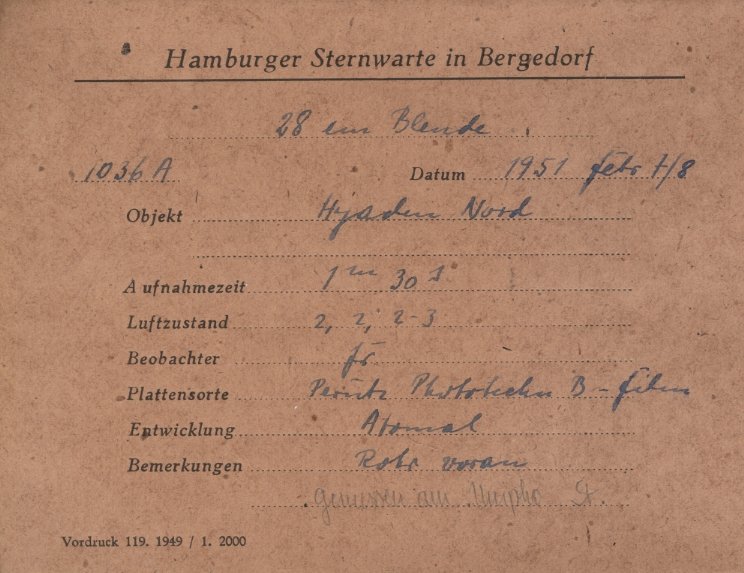 Hamburger Sternwarte in Bergedorf
28 cm Blende
1036 A Datum 1951 Febr 7/8
Objekt Hyaden Nord
Aufnahmezeit 1 m 30 s
Luftzustand 2, 2, 2-3
Beobachter
Plattensorte Perutz Phototechn B-Film
Entwicklung Atomal
Bemerkungen Rohr voran
gemessen am
Vordruck 119. 1949 / 1. 2000